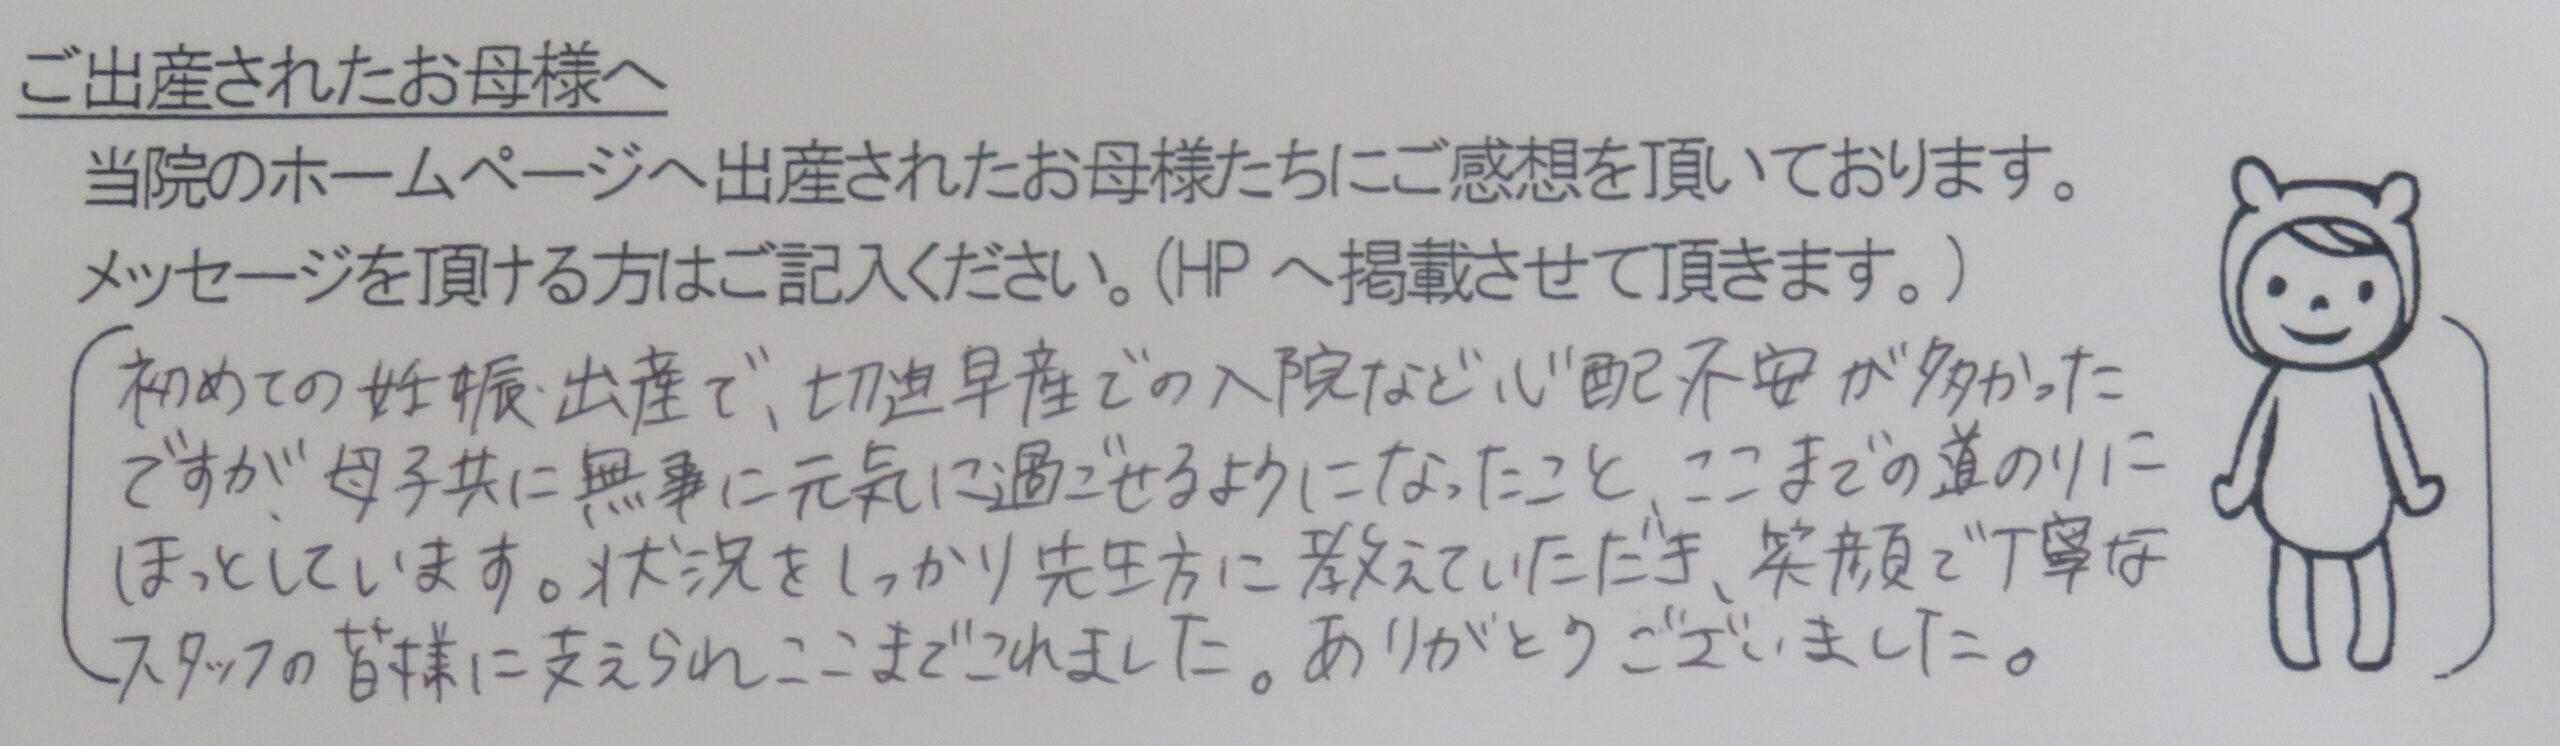 ご出産されたお母様へ
当院のホームページへ出産されたお母様たちにご感想を頂いております。
メッセージを頂ける方はご記入ください。(HPへ掲載させて頂きます。)
初めての妊娠・出産で、切迫早産での入院など心配不安が多かった
ですが、母子共に無事に元気に過ごせるようになったこと、ここまでの道のりに
ほっとしています。状況をしっかり先生方に教えていただき、笑顔で丁寧な
スタッフの皆様に支えられここまでこれました。ありがとうございました。